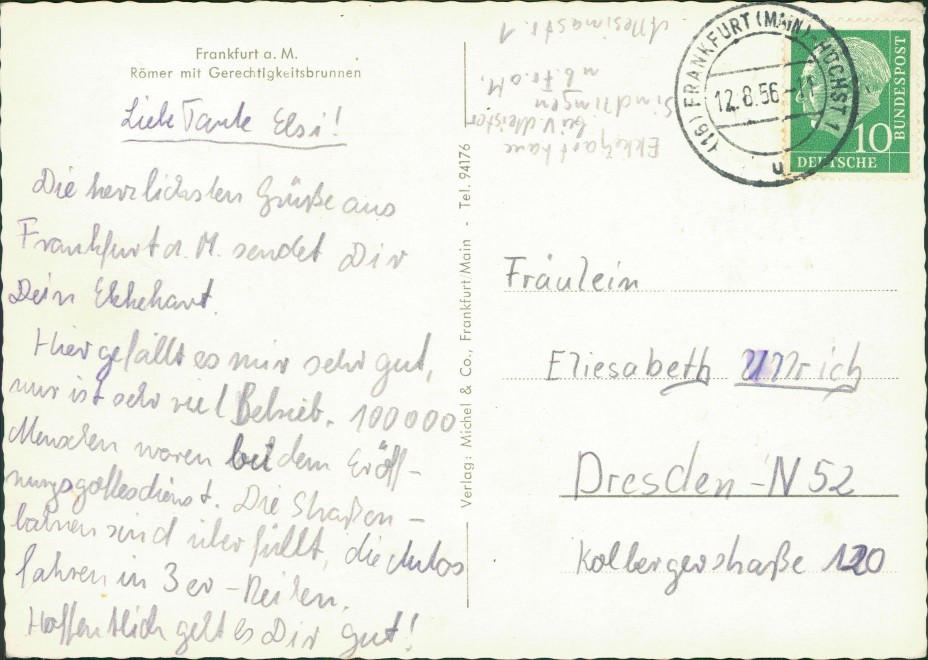 Frankfurt a. M.
Römer mit Gerechtigkeitsbrunnen
Liebe Tante Elsi!
Die herzlichsten Grüße aus
Frankfurt a. M. sendet Dir
Dein Ekkehart.
Hier gefällt es mir sehr gut,
nur ist sehr viel Betrieb. 100 000
Menschen waren bei dem Eröff-
nungsgottesdienst. Die Straßen-
bahnen sind überfüllt, die Autos
fahren in 3er-Reihen.
Hoffentlich geht es Dir gut!
Verlag: Michel & Co., Frankfurt/Main - Tel. 94176
Ekkehart
bei V. Meister
Sindlingen
b. Fr. a. M.
(16) FRANKFURT (MAIN)-HÖCHST 1
12.8.56-11
u
10
DEUTSCHE
BUNDESPOST
Fräulein
Eliesabeth Ullrich
Dresden-N 52
Kolbergerstraße 120